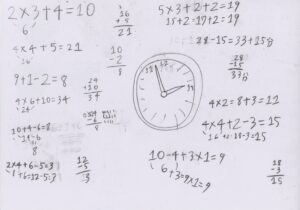 2×3+4=10
6
4×4+5=21
16
16
+5
21
9+1-2=8
10
-2
8
4×6+10=34
24
24
+10
34
10+4-6=8
14-6
8
2×4+6-5=3
8+6=12-5=3
12
-5
3
5×3+2+2=19
15+2=17+2=19
28-15=33+15
28
15
33
4×2=8+3=11
4×4+2-3=15
16+2=18-3=15
10-4+3×1=9
6+3=9×1=9
18
-3
15